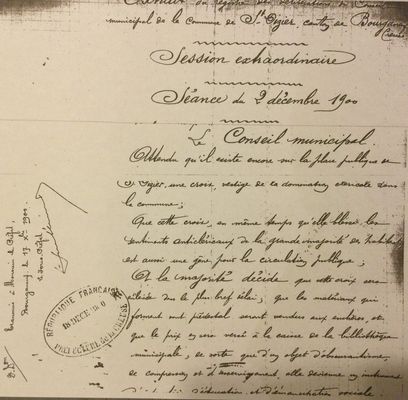 Extrait du registre des délibérations du Conseil
municipal de la Commune de St Dizier, canton de Bourganeuf
Creuse
Session extraordinaire
Séance du 2 décembre 1900
Le Conseil municipal.
Attendu qu'il existe encore sur la place publique de
St Dizier, une croix, vestige de la domination cléricale dans
la commune;
Que cette croix, en même temps qu'elle blesse les
sentiments anticléricaux de la grande majorité des habitants
est aussi une gêne pour la circulation publique;
à la majorité décide que cette croix sera
enlevée dans le plus bref délai; que les matériaux qui
forment son piédestal seront vendus aux enchères, et
que le prix en sera versé à la caisse de la bibliothèque
municipale, de sorte que d'un objet d'obscurantisme,
de et d' elle devienne un instrument
d'éducation et d'émancipation sociale.
Transmis à Monsieur le Préfet,
Bourganeuf, le 17 Xbre 1900.
Le Sous-Préfet,
RÉPUBLIQUE FRANÇAISE
18 DÉCE 1900
PRÉFECTURE DE LA CREUSE